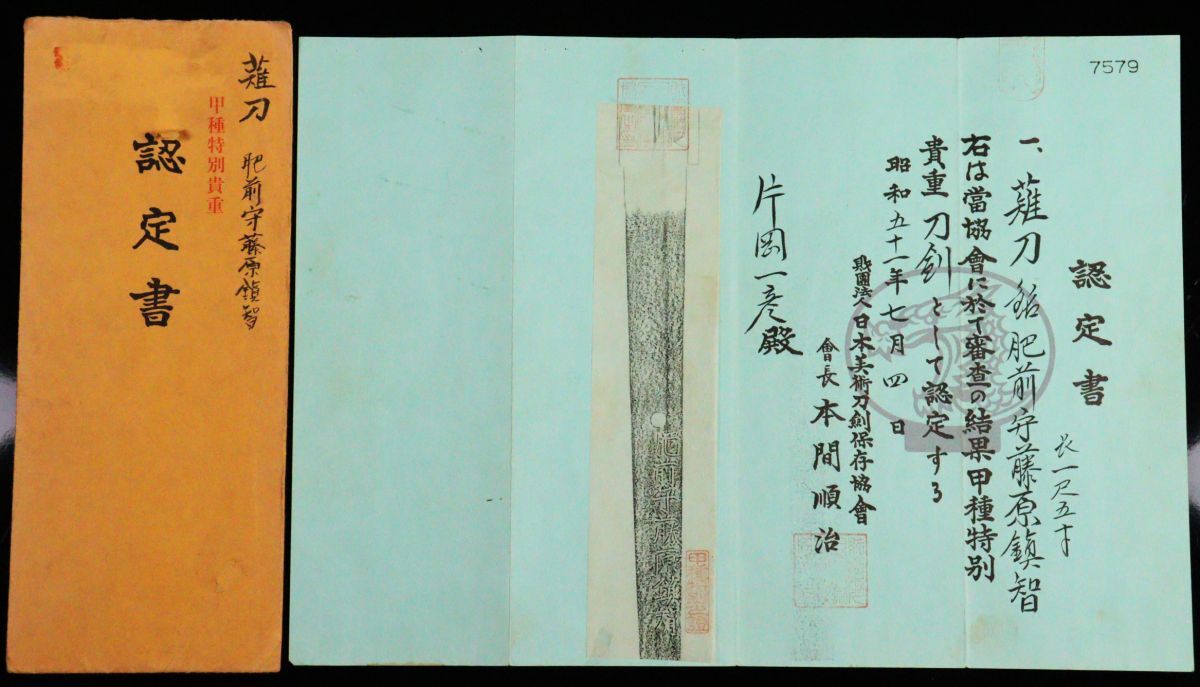 薙刀 肥前守藤原鎮智
甲種特別貴重
認定書
7579
認定書
一、薙刀 銘 肥前守藤原鎮智
長一尺五寸
右は當協會に於て審査の結果甲種特別
貴重刀剣として認定する
昭和五十一年七月四日
財團法人日本美術刀剣保存協會
會長 本間順治
片岡一彦殿
肥前守藤原鎮智